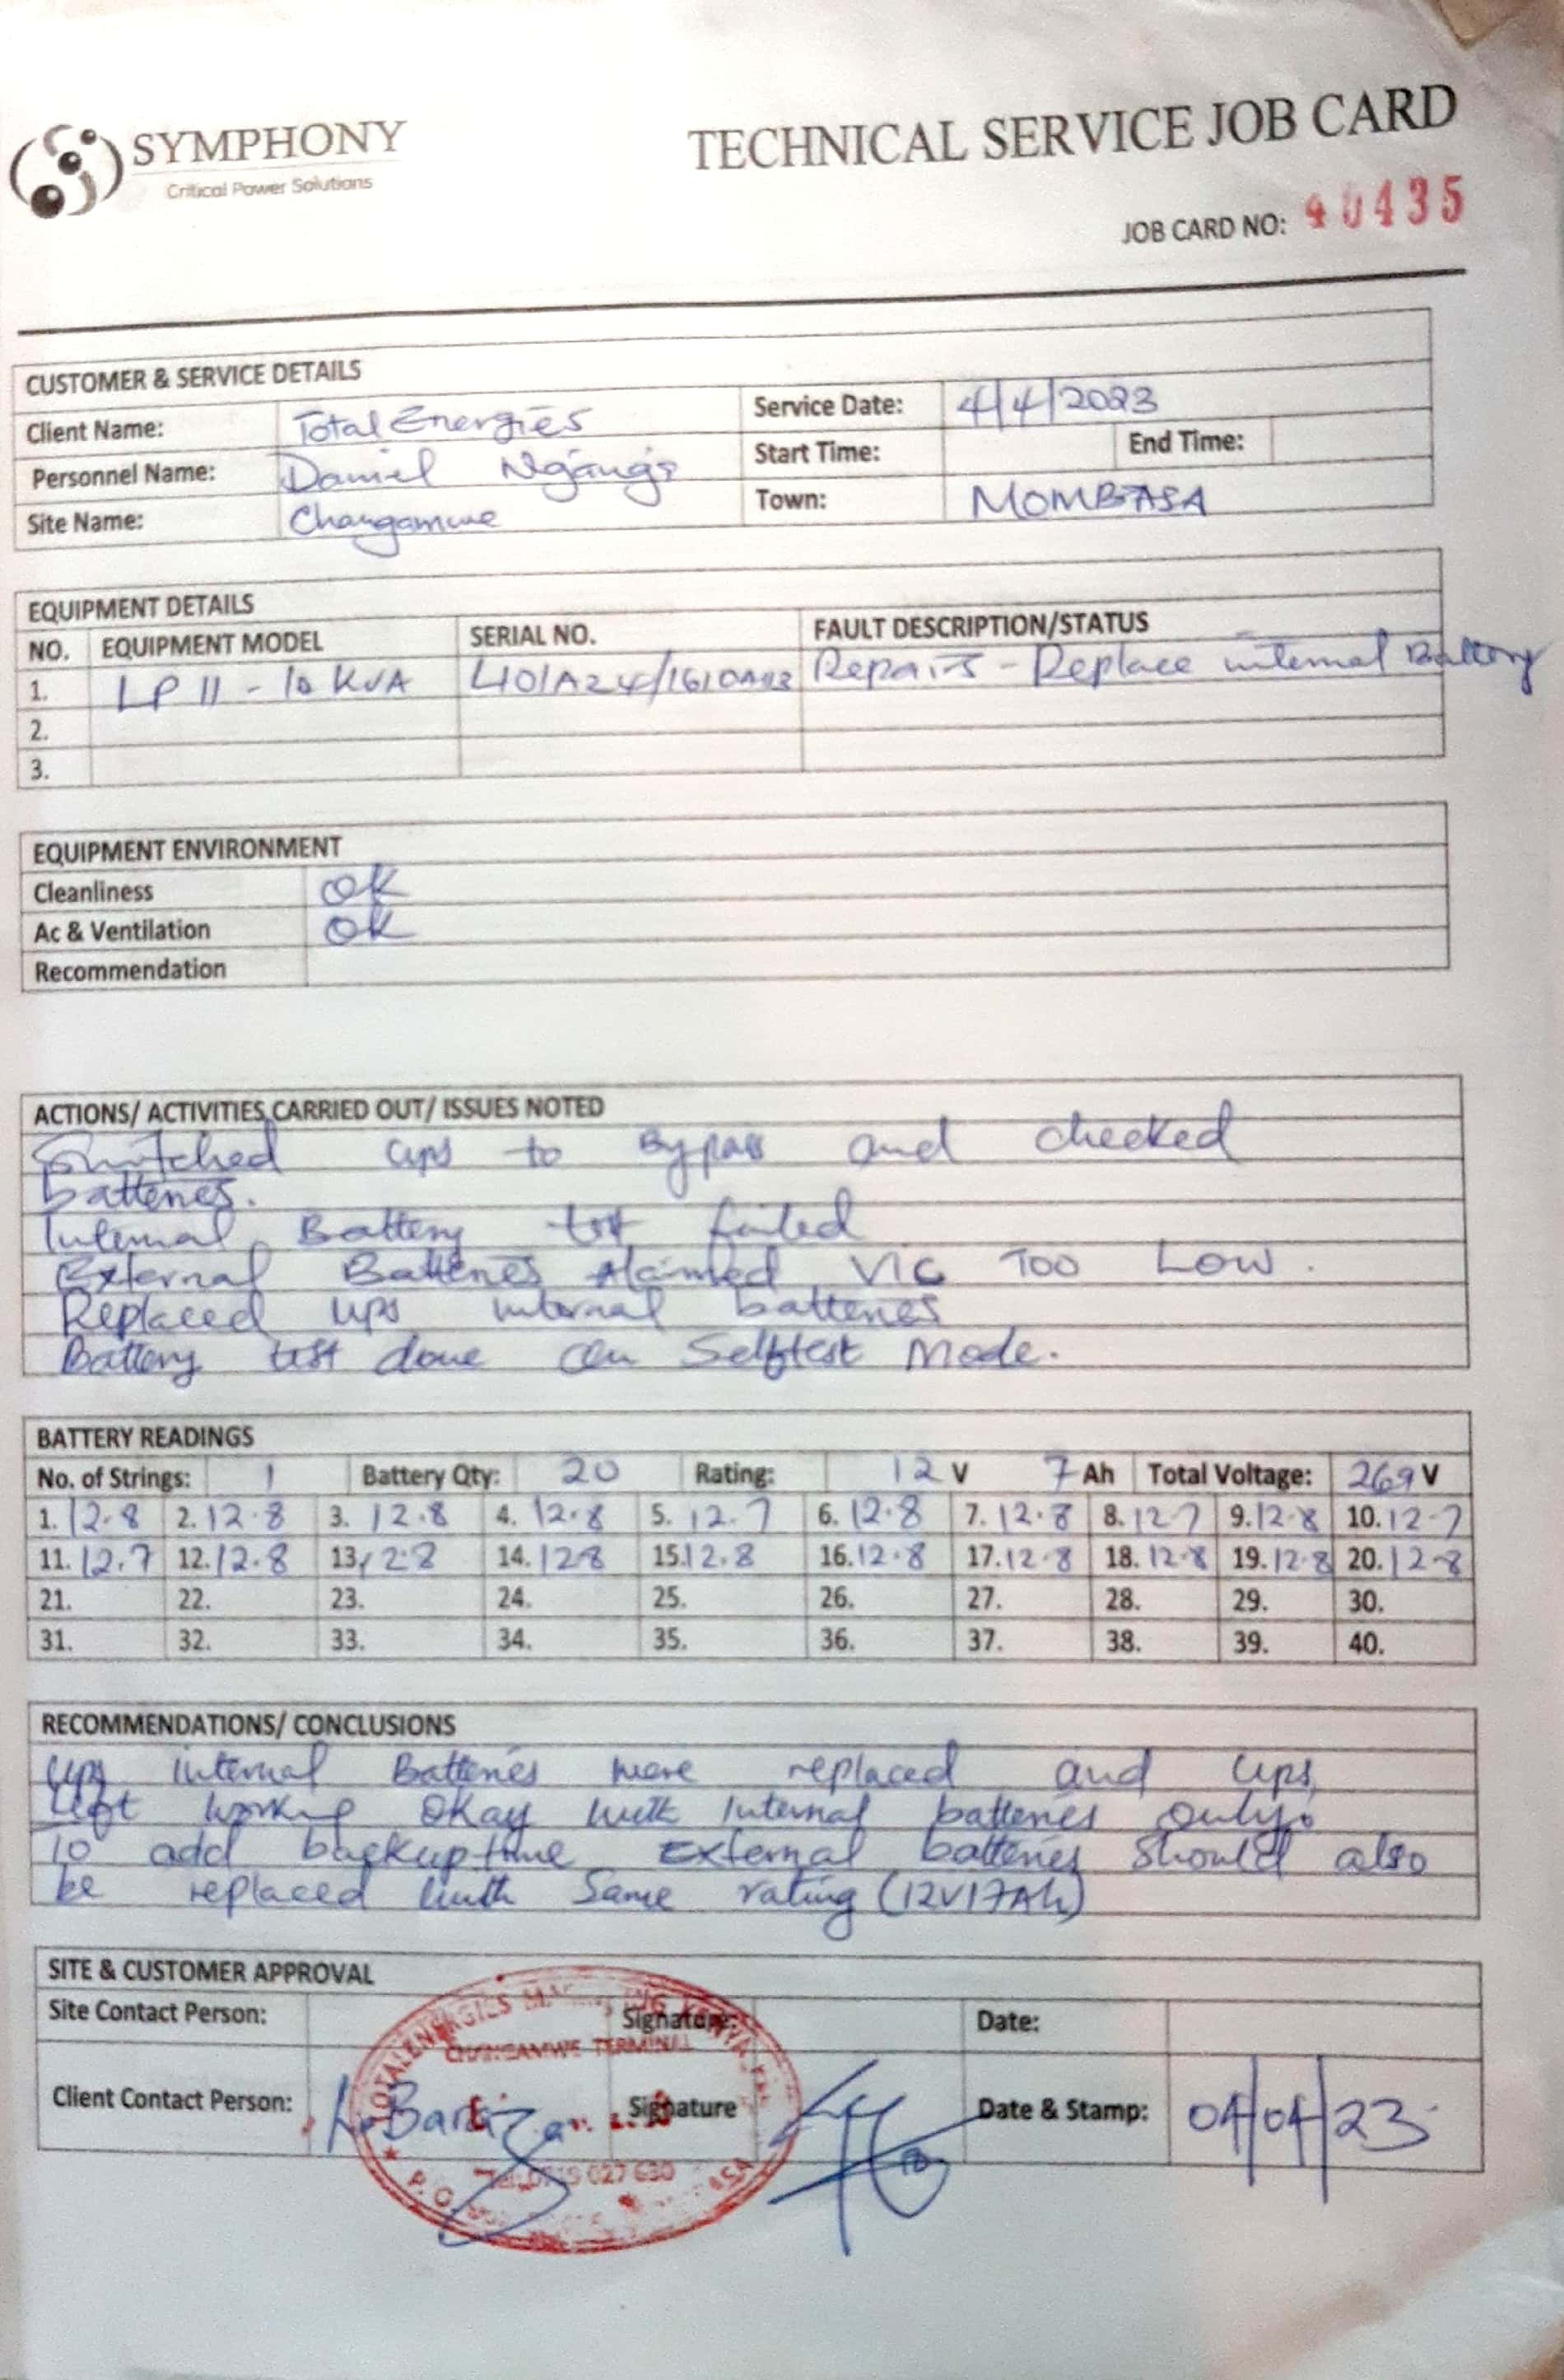 SYMPHONY
Critical Power Solutions
TECHNICAL SERVICE JOB CARD
JOB CARD NO: 40435
CUSTOMER & SERVICE DETAILS
Client Name: Total Energies Service Date: 4/4/2023
Personnel Name: Daniel Start Time: End Time:
Site Name: Changamwe Town: MOMBASA
EQUIPMENT DETAILS
NO. EQUIPMENT MODEL SERIAL NO. FAULT DESCRIPTION/STATUS
1. LP 11 - 10 KVA Repairs - Replace internal Battery
2.
3.
EQUIPMENT ENVIRONMENT
Cleanliness OK
Ac & Ventilation OK
Recommendation
ACTIONS/ ACTIVITIES CARRIED OUT/ ISSUES NOTED
Switched ups to Bypass and checked
batteries.
Internal Battery test failed
External Batteries Too Low.
Replaced ups internal batteries
Battery test done on Selftest Mode.
BATTERY READINGS
No. of Strings: 1 Battery Qty: 20 Rating: 12 V 7 Ah Total Voltage: 269 V
1. 12.8 2. 12.8 3. 12.8 4. 12.8 5. 12.7 6. 12.8 7. 12.8 8. 12.7 9. 12.8 10. 12.7
11. 12.7 12. 12.8 13. 12.8 14. 12.8 15. 12.8 16. 12.8 17. 12.8 18. 12.8 19. 12.8 20. 12.8
21. 22. 23. 24. 25. 26. 27. 28. 29. 30.
31. 32. 33. 34. 35. 36. 37. 38. 39. 40.
RECOMMENDATIONS/ CONCLUSIONS
Ups internal Batteries were replaced and ups
Left working Okay with Internal batteries only.
To add backup time External batteries Should also
be replaced with Same rating (12V17Ah)
SITE & CUSTOMER APPROVAL
Site Contact Person: Signature: Date:
TOTALENERGIES KENYA
CHANGAMWE TERMINAL
Client Contact Person: Signature Date & Stamp: 04/04/23